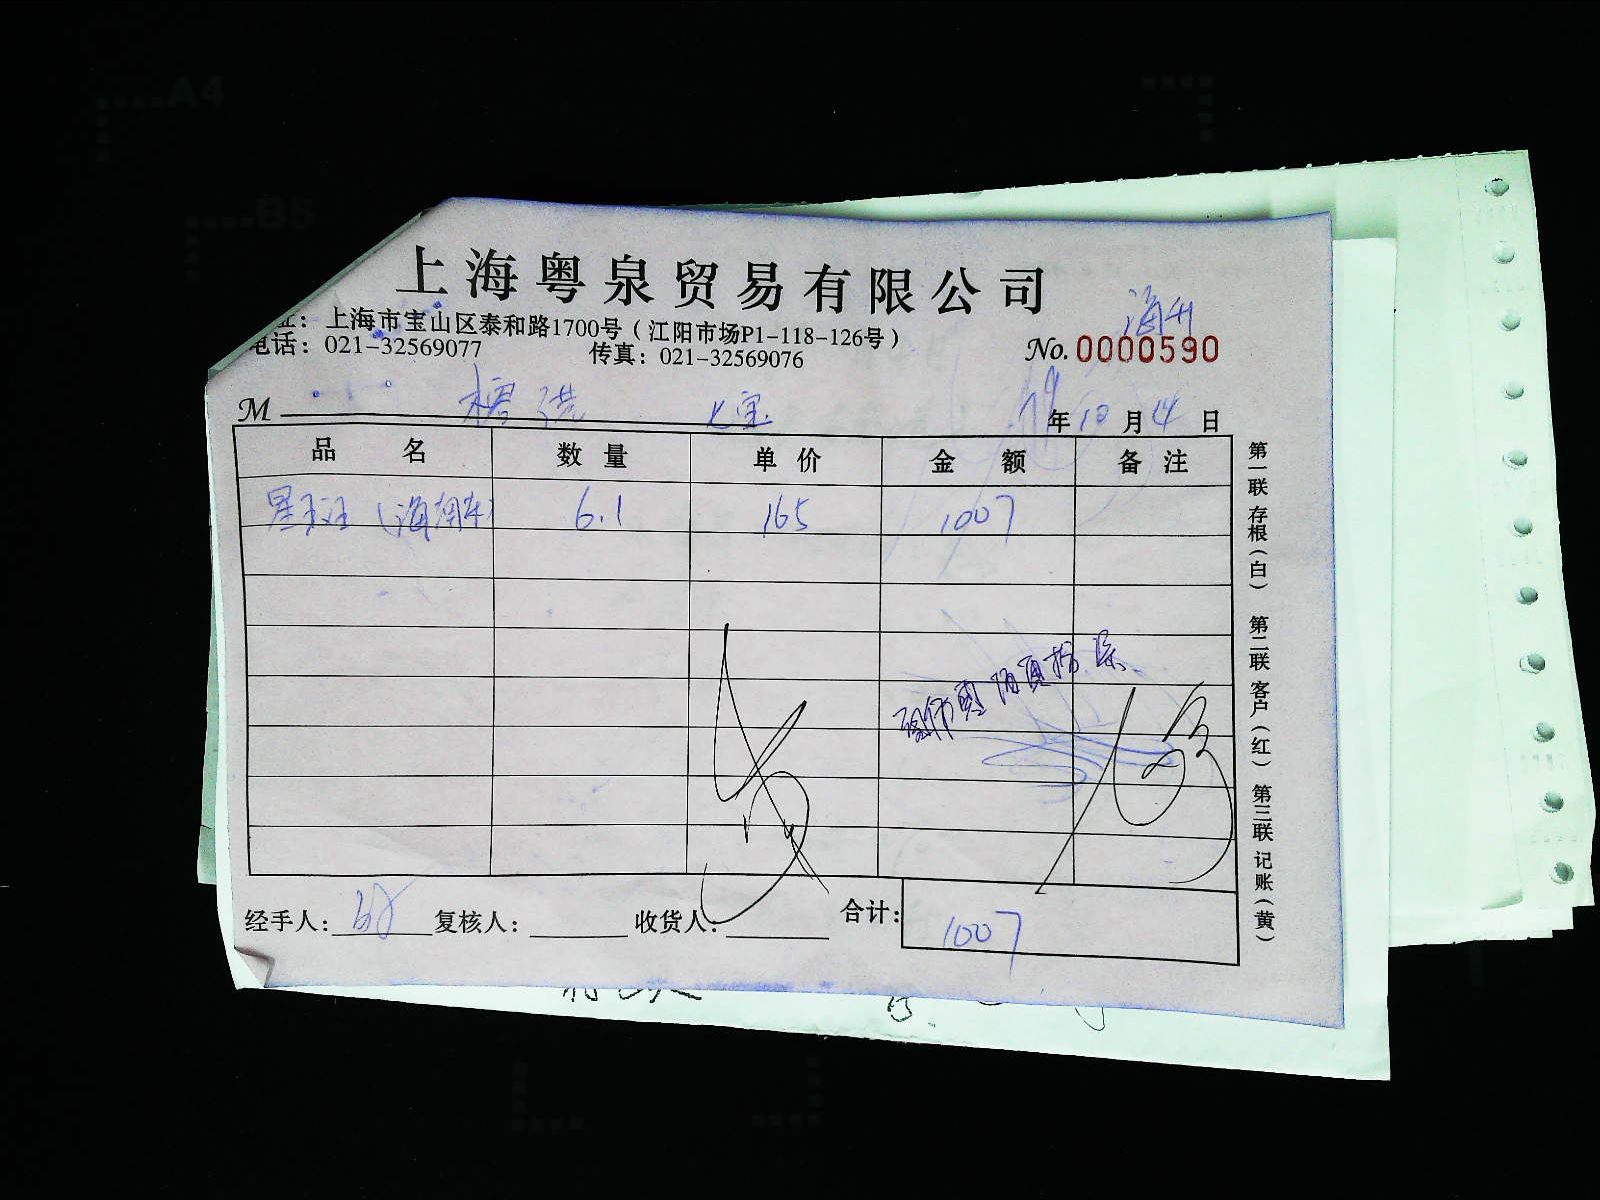 上海粤泉贸易有限公司
址：上海市宝山区泰和路1700号（江阳市场P1-118-126号）
电话：021-32569077 传真：021-32569076
No. 0000590
M 七宝 19年10月14日
品名 数量 单价 金额 备注
星斑（海南车） 6.1 165 1007
经手人： 复核人： 收货人： 合计： 1007
第一联 存根（白） 第二联 客户（红） 第三联 记账（黄）
A4
B5